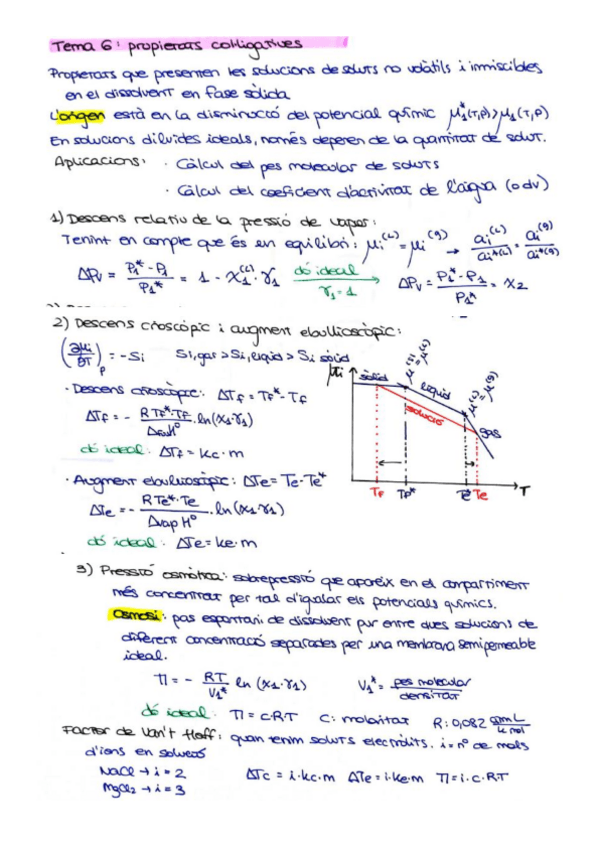 Tema 6: propietats col·ligatives
Propietats que presenten les solucions de soluts no volàtils i immiscibles
en el dissolvent en fase sòlida
L'origen està en la disminució del potencial químic μ₁*(T,P)>μ₁(T,P)
En solucions diluïdes ideals, només depenen de la quantitat de solut.
Aplicacions: · Càlcul del pes molecular de soluts
· Càlcul del coeficient d'activitat de l'aigua (o dv)
1) Descens relatiu de la pressió de vapor:
Tenint en compte que és en equilibri: μi^(L) = μi^(g) → ai^(L)/ai*(L) = ai^(g)/ai*(g)
ΔPv = (P1* - P1)/P1* = 1 - x1^(L)·γ1 dó ideal γ1=1 ΔPv = (P1* - P1)/P1* = x2
2) Descens crioscòpic i augment ebullioscòpic:
(∂μi/∂T)p = -Si Si,gas > Si,líquid > Si sòlid
· Descens crioscòpic: ΔTf = Tf* - Tf
ΔTf = - (R Tf*·Tf / ΔfusH°) · ln(x1·γ1)
dó ideal: ΔTf = kc·m
· Augment ebullioscòpic: ΔTe = Te - Te*
ΔTe = - (R Te*·Te / Δvap H°) · ln(x1·γ1)
dó ideal: ΔTe = ke·m
μi
sòlid
μ^(s) = μ^(L)
líquid
μ^(L) = μ^(g)
solució
gas
Tf Tf* Te* Te T
3) Pressió osmòtica: sobrepressió que apareix en el compartiment
més concentrat per tal d'igualar els potencials químics.
Osmosi: pas espontani de dissolvent pur entre dues solucions de
diferent concentració separades per una membrana semipermeable
ideal.
Π = - (RT/V1*) ln (x1·γ1) V1* = pes molecular/densitat
dó ideal: Π = cRT C: molaritat R: 0,082 atm L/k mol
Factor de Van't Hoff: quan tenim soluts electròlits. i = nº de mols
d'ions en solució
NaCl → i = 2 ΔTc = i·kc·m ΔTe = i·ke·m Π = i·c·RT
MgCl2 → i = 3